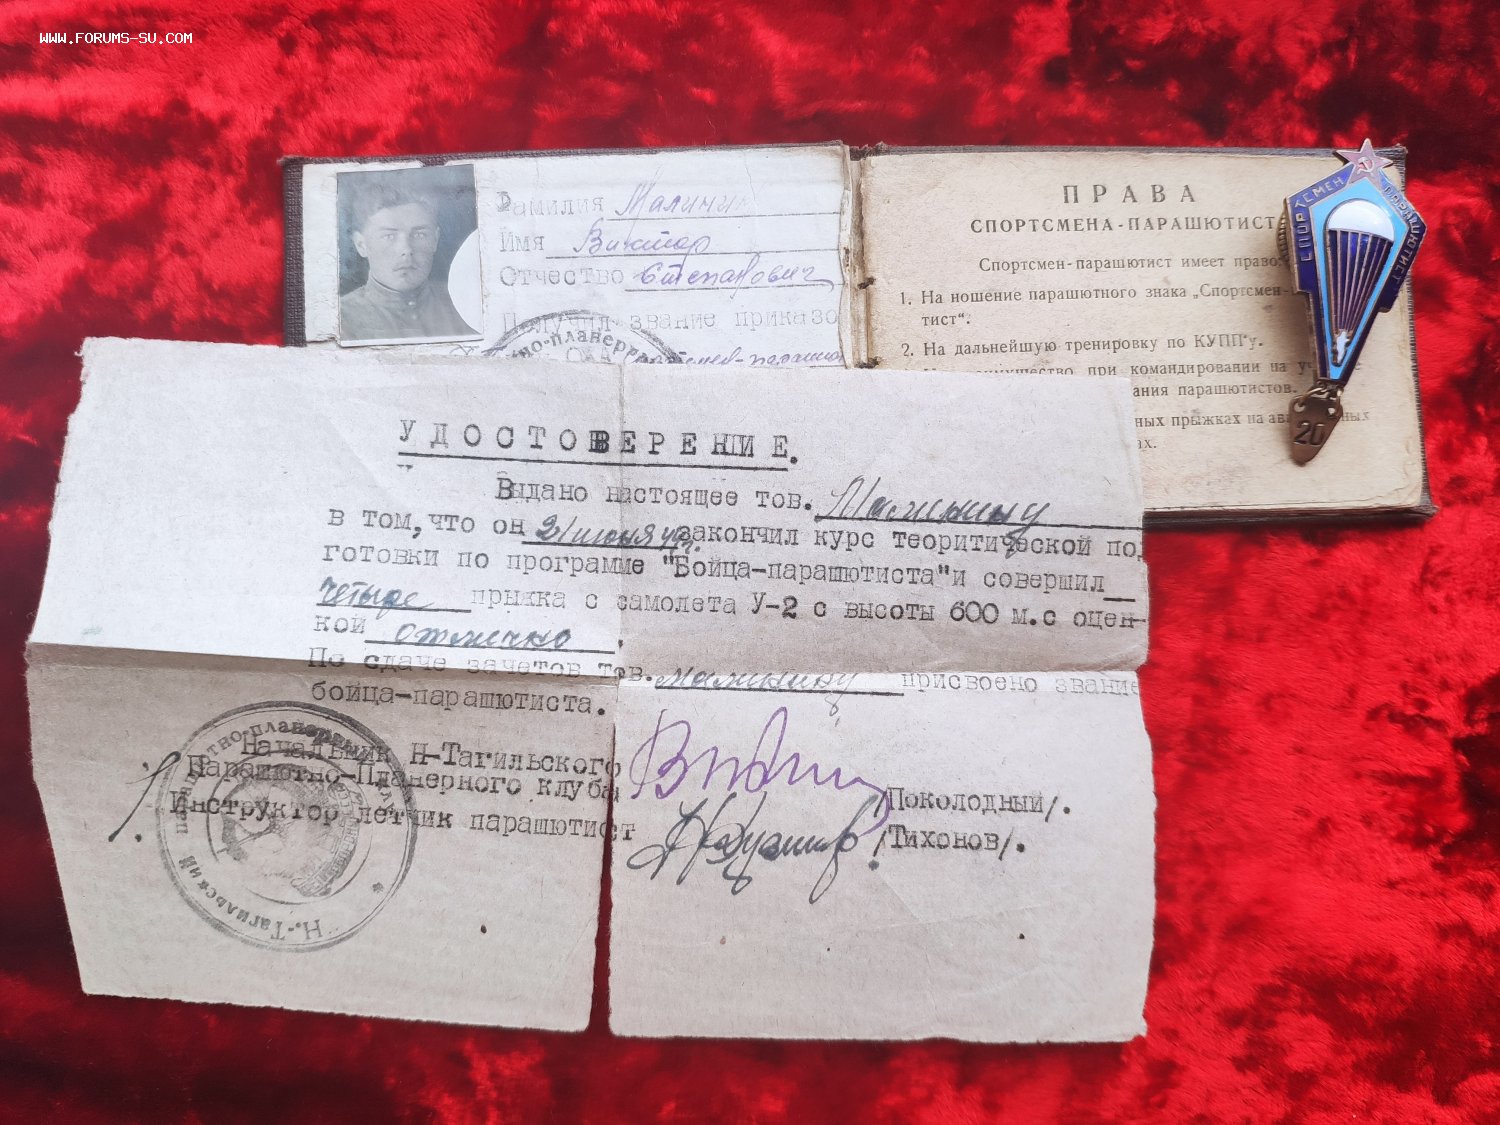 WWW.FORUMS-SU.COM
Фамилия Малинин
Имя Виктор
Отчество Степанович
Получил звание приказо
ПРАВА
СПОРТСМЕНА-ПАРАШЮТИСТ
Спортсмен-парашютист имеет право:
1. На ношение парашютного знака „Спортсмен-
тист“.
2. На дальнейшую тренировку по КУПП'у.
при командировании на
ания парашютистов.
ных прыжках на
ах.
СПОРТСМЕН ПАРАШЮТИСТ
20
УДОСТОВЕРЕНИЕ.
Выдано настоящее тов. Малинину
в том, что он 21 июня закончил курс теоритической под
готовки по программе "Бойца-парашютиста" и совершил
четыре прыжка с самолета У-2 с высоты 600 м. с оцен-
кой отлично.
По сдаче зачетов тов. Малинину присвоено звание
бойца-парашютиста.
Начальник Н-Тагильского
Парашютно-Планерного клуба /Поколодный/.
Инструктор летчик парашютист /Тихонов/.
Н.-Тагильский